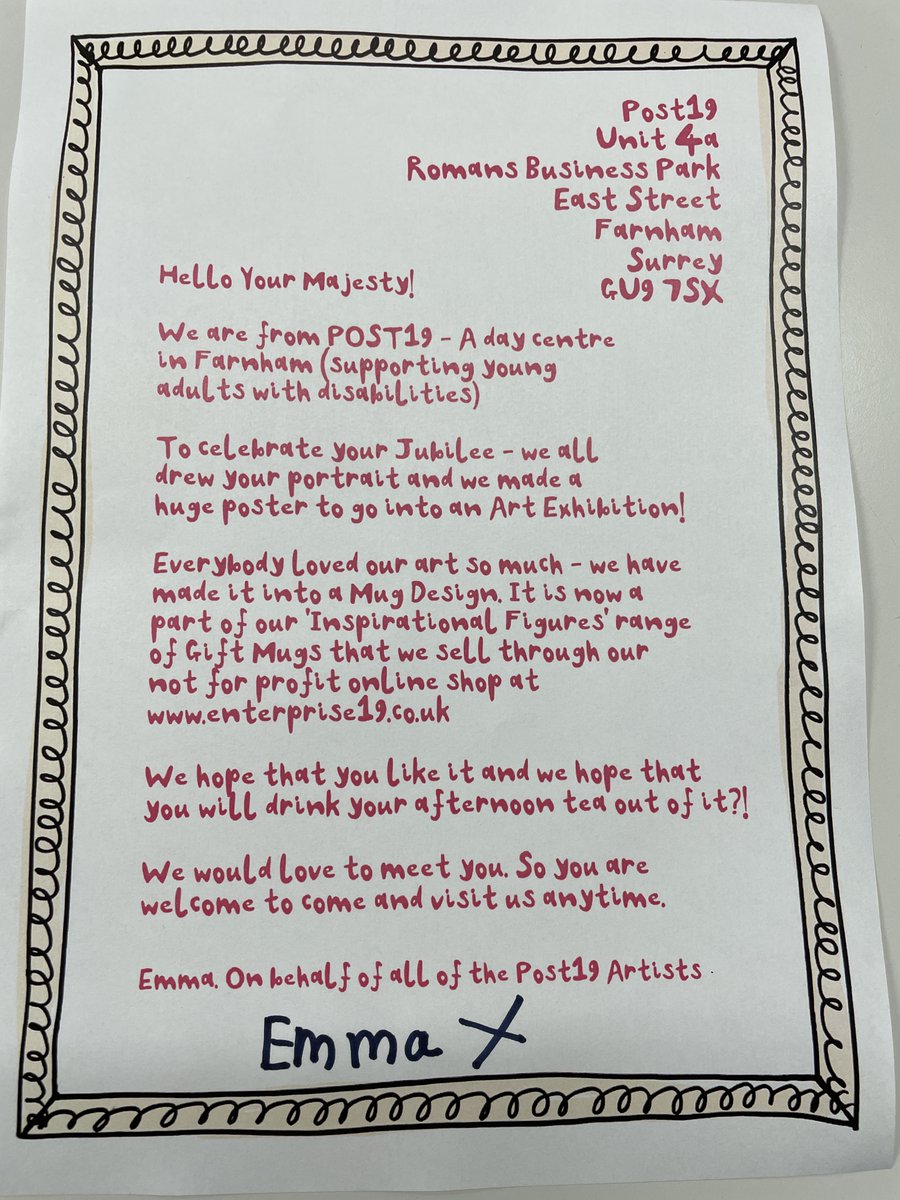 Post19
Unit 4a
Romans Business Park
East Street
Farnham
Surrey
GU9 7SX
Hello Your Majesty!
We are from POST19 - A day centre
in Farnham (supporting young
adults with disabilities)
To celebrate your Jubilee - we all
drew your portrait and we made a
huge poster to go into an Art Exhibition!
Everybody loved our art so much - we have
made it into a Mug Design. It is now a
part of our 'Inspirational Figures' range
of Gift Mugs that we sell through our
not for profit online shop at
www.enterprise19.co.uk
We hope that you like it and we hope that
you will drink your afternoon tea out of it?!
We would love to meet you. So you are
welcome to come and visit us anytime.
Emma. On behalf of all of the Post19 Artists
Emma X